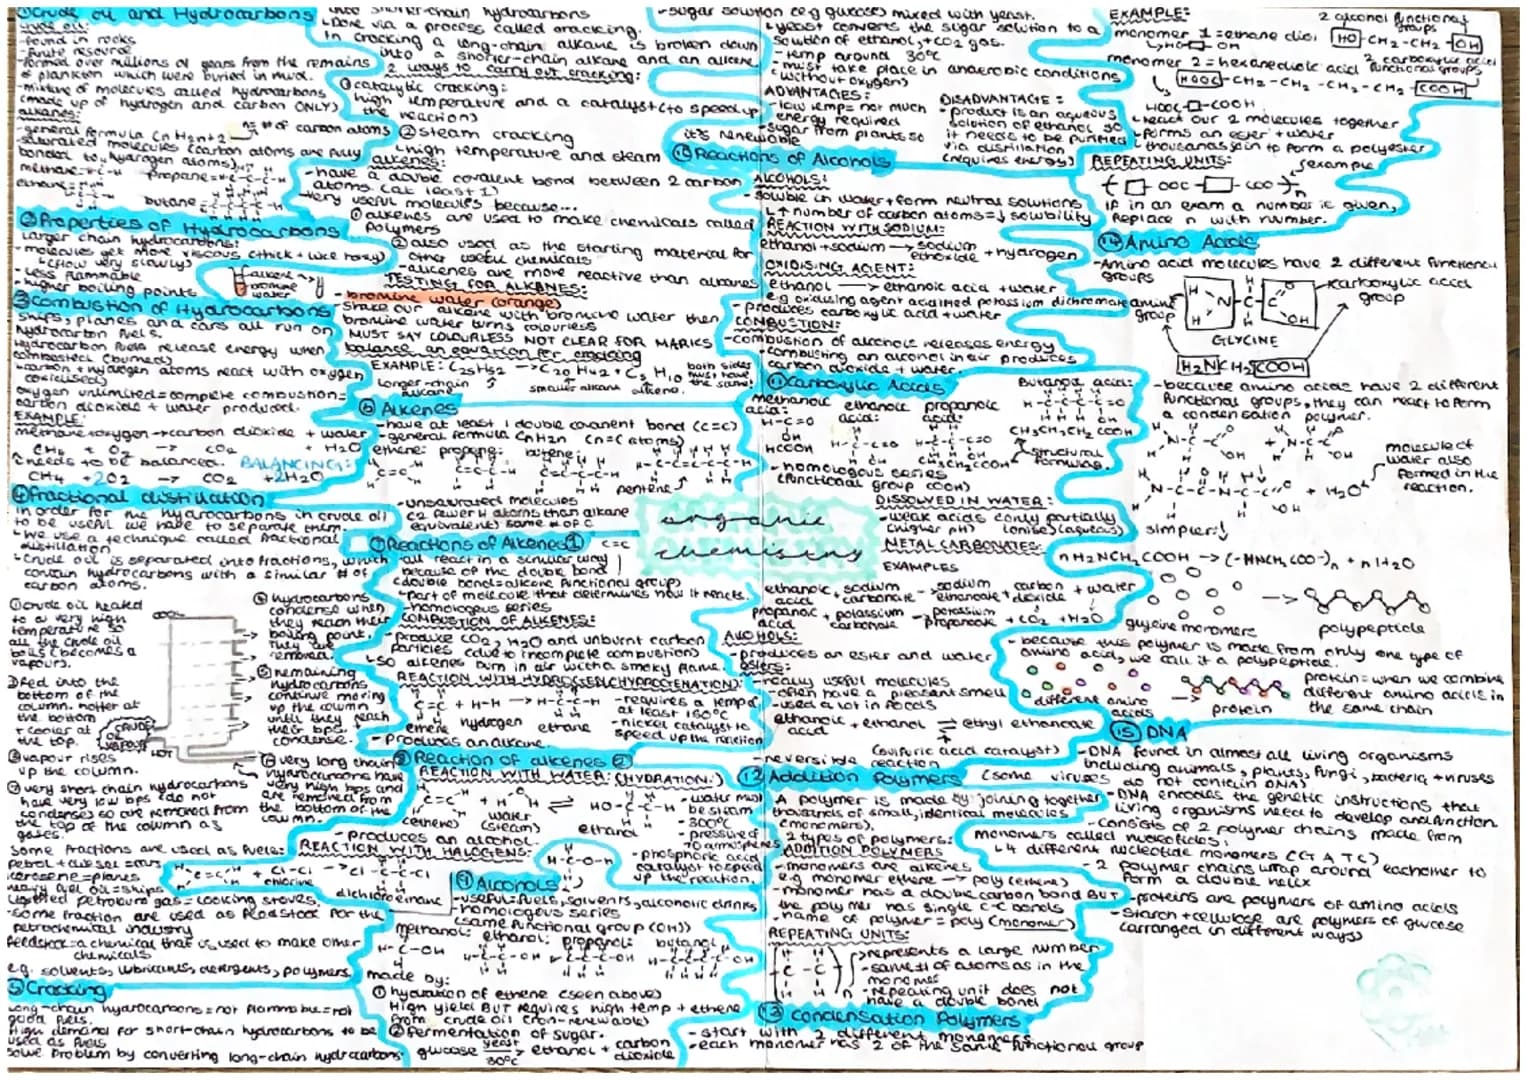 ① Crude oil and Hydrocarbons
crude oil:
-found in rocks
-finite resource
-formed over millions of years from the remains
of plankton which were buried in mud.
-mixture of molecules called hydrocarbons
(made up of hydrogen and carbon ONLY)
alkanes:
-general formula CnH2n+2 n = # of carbon atoms
-saturated molecules (carbon atoms are fully
bonded to hydrogen atoms)
methane= propane=
ethane=
butane=
② Properties of Hydrocarbons
Larger chain hydrocarbons:
-molecules get more viscous (thick + like honey)
(flow very slowly)
-less flammable
-higher boiling points
alkene
bromine
water
③ Combustion of Hydrocarbons
Ships, planes and cars all run on
hydrocarbon fuels.
Hydrocarbon fuels release energy when
combusted (burned)
-carbon + hydrogen atoms react with oxygen
(oxidised)
oxygen unlimited=complete combustion=
carbon dioxide + water produced.
EXAMPLE:
methane+oxygen→carbon dioxide + water
CH4 + O2 → CO2 H2O
needs to be balanced. BALANCING:
CH4 +2O2 → CO2 +2H2O
④ Fractional distillation
In order for the hydrocarbons in crude oil
to be useful we have to separate them.
-we use a technique called fractional
distillation
-crude oil is separated into fractions, which
contain hydrocarbons with a similar # of
carbon atoms.
①crude oil heated
to a very high
temperature so
all the crude oil
boils (becomes a
vapour).
②fed into the
bottom of the
column. hotter at
the bottom
+ cooler at
the top.
③vapour rises
up the column.
COOL
CRUDE
OIL
VAPOUR
HOT
④ hydrocarbons
condense when
they reach their
boiling point.
They are
removed.
⑤ remaining
hydrocarbons
continue moving
up the column
until they reach
their bps.
condense.
⑥ very long chain
hydrocarbons have
very high bps and
are removed from
the bottom of the
column.
⑦ very short chain hydrocarbons
have very low bps (do not
condense) so are removed from
the top of the column as
gases.
Some fractions are used as fuels:
petrol + diesel=cars
kerosene=planes
heavy fuel oil=ships
liquified petroleum gas=cooking stoves.
-some fraction are used as feedstock for the
petrochemical industry
feedstock=a chemical that is used to make other
chemicals
e.g. solvents, lubricants, detergents, polymers
⑤ Cracking
Long-chain hydrocarbons=not flammable=not
good fuels.
High demand for short-chain hydrocarbons to be
used as fuels
solve problem by converting long-chain hydrocarbons
into shorter-chain hydrocarbons
-Done via a process called cracking.
In cracking a long-chain alkane is broken down
into shorter-chain alkane and an alkene
2 ways to carry out cracking:
①catalytic cracking:
high temperature and a catalyst (to speed up
the reaction)
②steam cracking
high temperature and steam
alkenes:
-have a double covalent bond between 2 carbon
atoms. (at least 1)
-very useful molecules because...
①alkenes are used to make chemicals called
polymers
②also used as the starting material for
other useful chemicals
-alkenes are more reactive than alkanes
TESTING FOR ALKENES:
-bromine water (orange)
Shake our alkene with bromine water then
bromine water turns colourless
MUST SAY COLOURLESS NOT CLEAR FOR MARKS
balance an equation for cracking
EXAMPLE: C25H52 → C20H42 + C5H10 both sides
must have
the same!
longer-chain
alkane
smaller alkane alkene.
⑥ Alkenes
-have at least 1 double covalent bond (C=C)
-general formula CnH2n (n=C atoms)
ethene: propene: butene:
pentene
-unsaturated molecules
(2 fewer H atoms than alkane
equivalent) same # of C
⑦ Reactions of Alkenes① C=C
-all react in a similar way
because of the double bond
(double bond=alkene functional group)
-part of molecule that determines how it reacts.
-homologous series
COMBUSTION OF ALKENES:
-produce CO2, H2O and unburnt carbon
particles (due to incomplete combustion)
so alkenes burn in air with a smoky flame.
REACTION WITH HYDROGEN(HYDROGENATION):
C=C + H-H →
ethene hydrogen ethane
-requires a temp of
at least 150°C
-nickel catalyst to
speed up the reaction
-produces an alkane.
⑧ Reaction of alkenes ②
REACTION WITH WATER: (HYDRATION:)
(ethene) water
(steam) ethanol
-water must
be steam
-300°C
-pressure of
70 atmospheres
-phosphoric acid
catalyst to speed
up the reaction.
-produces an alcohol.
REACTION WITH HALOGENS:
+ Cl-Cl →
chlorine dichloroethane
⑨ Alcohols
-useful=fuels, solvents, alcoholic drinks
-homologous series
(same functional group (OH))
methanol: ethanol: propanol: butanol:
made by:
① hydration of ethene (seen above)
High yield BUT requires high temp + ethene
from crude oil (non-renewable)
②fermentation of sugar.
glucose yeast → 30°C ethanol + carbon
dioxide
-sugar solution (e.g glucose) mixed with yeast.
yeast converts the sugar solution to a
solution of ethanol, +CO2 gas.
-temp around 30°C
-must take place in anaerobic conditions
(without oxygen)
ADVANTAGES:
-low temp= not much
energy required
-sugar from plants so
it's renewable
DISADVANTAGE:
-product is an aqueous
solution of ethanol so
it needs to be purified
via distillation
(requires energy)
⑩ Reactions of Alcohols
ALCOHOLS:
-soluble in water+form neutral solutions
↑ number of carbon atoms=↓ solubility
REACTION WITH SODIUM:
ethanol+sodium → sodium
ethoxide +hydrogen
OXIDISING AGENT:
ethanol → ethanoic acid +water
e.g oxidising agent acidified potassium dichromate
-produces carboxylic acid +water
COMBUSTION:
-combustion of alcohols releases energy
-combusting an alcohol in air produces
carbon dioxide + water.
⑪ Carboxylic Acids
methanoic
acid: ethanoic
acid: propanoic
acid: Butanoic acid:
HCOOH
CH3CH2COOH
CH3CH2CH2COOH
structural
formulas.
-homologous series
(functional group COOH)
DISSOLVED IN WATER:
-weak acids (only partially
(higher pH) ionise) (aqueous)
METAL CARBONATES:
EXAMPLES
ethanoic
acid + sodium
carbonate → sodium
ethanoate + carbon
dioxide + water
propanoic
acid + potassium
carbonate → potassium
propanoate + CO2 + H2O
ALCOHOLS:
-produces an ester and water
esters:
-really useful molecules
-often have a pleasant smell
-used a lot in foods
ethanoic
acid + ethanol ⇌ ethyl ethanoate
(sulfuric acid catalyst)
-reversible reaction
⑫ Addition Polymers
A polymer is made by joining together
thousands of small, identical molecules
(monomers).
2 types of polymers:
ADDITION POLYMERS
-monomers are alkenes
e.g monomer ethene → poly(ethene)
-monomer has a double carbon bond BUT
the polymer has single C-C bonds
-name of polymer = poly(monomer)
REPEATING UNITS:
represents a large number
-same # of atoms as in the
monomer
-repeating unit does not
have a double bond
⑬ Condensation Polymers
-start with 2 different monomers
-each monomer has 2 of the same functional group
organic
chemistry
EXAMPLE:
monomer 1 = ethane diol
HO-□-OH
2 alcohol functional
groups
HO-CH2-CH2-OH
monomer 2 = hexanedioic acid
2 carboxylic acid
functional groups
HOOC-CH2-CH2-CH2-CH2-COOH
HOOC-□-COOH
-react our 2 molecules together
-forms an ester + water
thousands join to form a polyester
REPEATING UNITS: example
If in an exam a number is given,
replace n with number.
⑭ Amino Acids
-Amino acid molecules have 2 different functional
groups
amino
group
carboxylic acid
group
GLYCINE
H2NCH2COOH
-because amino acids have 2 different
functional groups, they can react to form
a condensation polymer.
molecule of
water also
formed in the
reaction.
+ H2O
simpler:
nH2NCH2COOH → (-HNCH2COO-)n + nH2O
glycine monomers polypeptide
-because this polymer is made from only one type of
amino acid, we call it a polypeptide.
different amino
acids
protein
protein=when we combine
different amino acids in
the same chain
⑮ DNA
-DNA found in almost all living organisms
including animals, plants, fungi, bacteria + viruses
(some viruses do not contain DNA)
-DNA encodes the genetic instructions that
living organisms need to develop and function
-consists of 2 polymer chains made from
monomers called nucleotides.
4 different nucleotide monomers (G A T C)
-2 polymer chains wrap around eachother to
form a double helix
-proteins are polymers of amino acids
-starch + cellulose are polymers of glucose
(arranged in different ways)